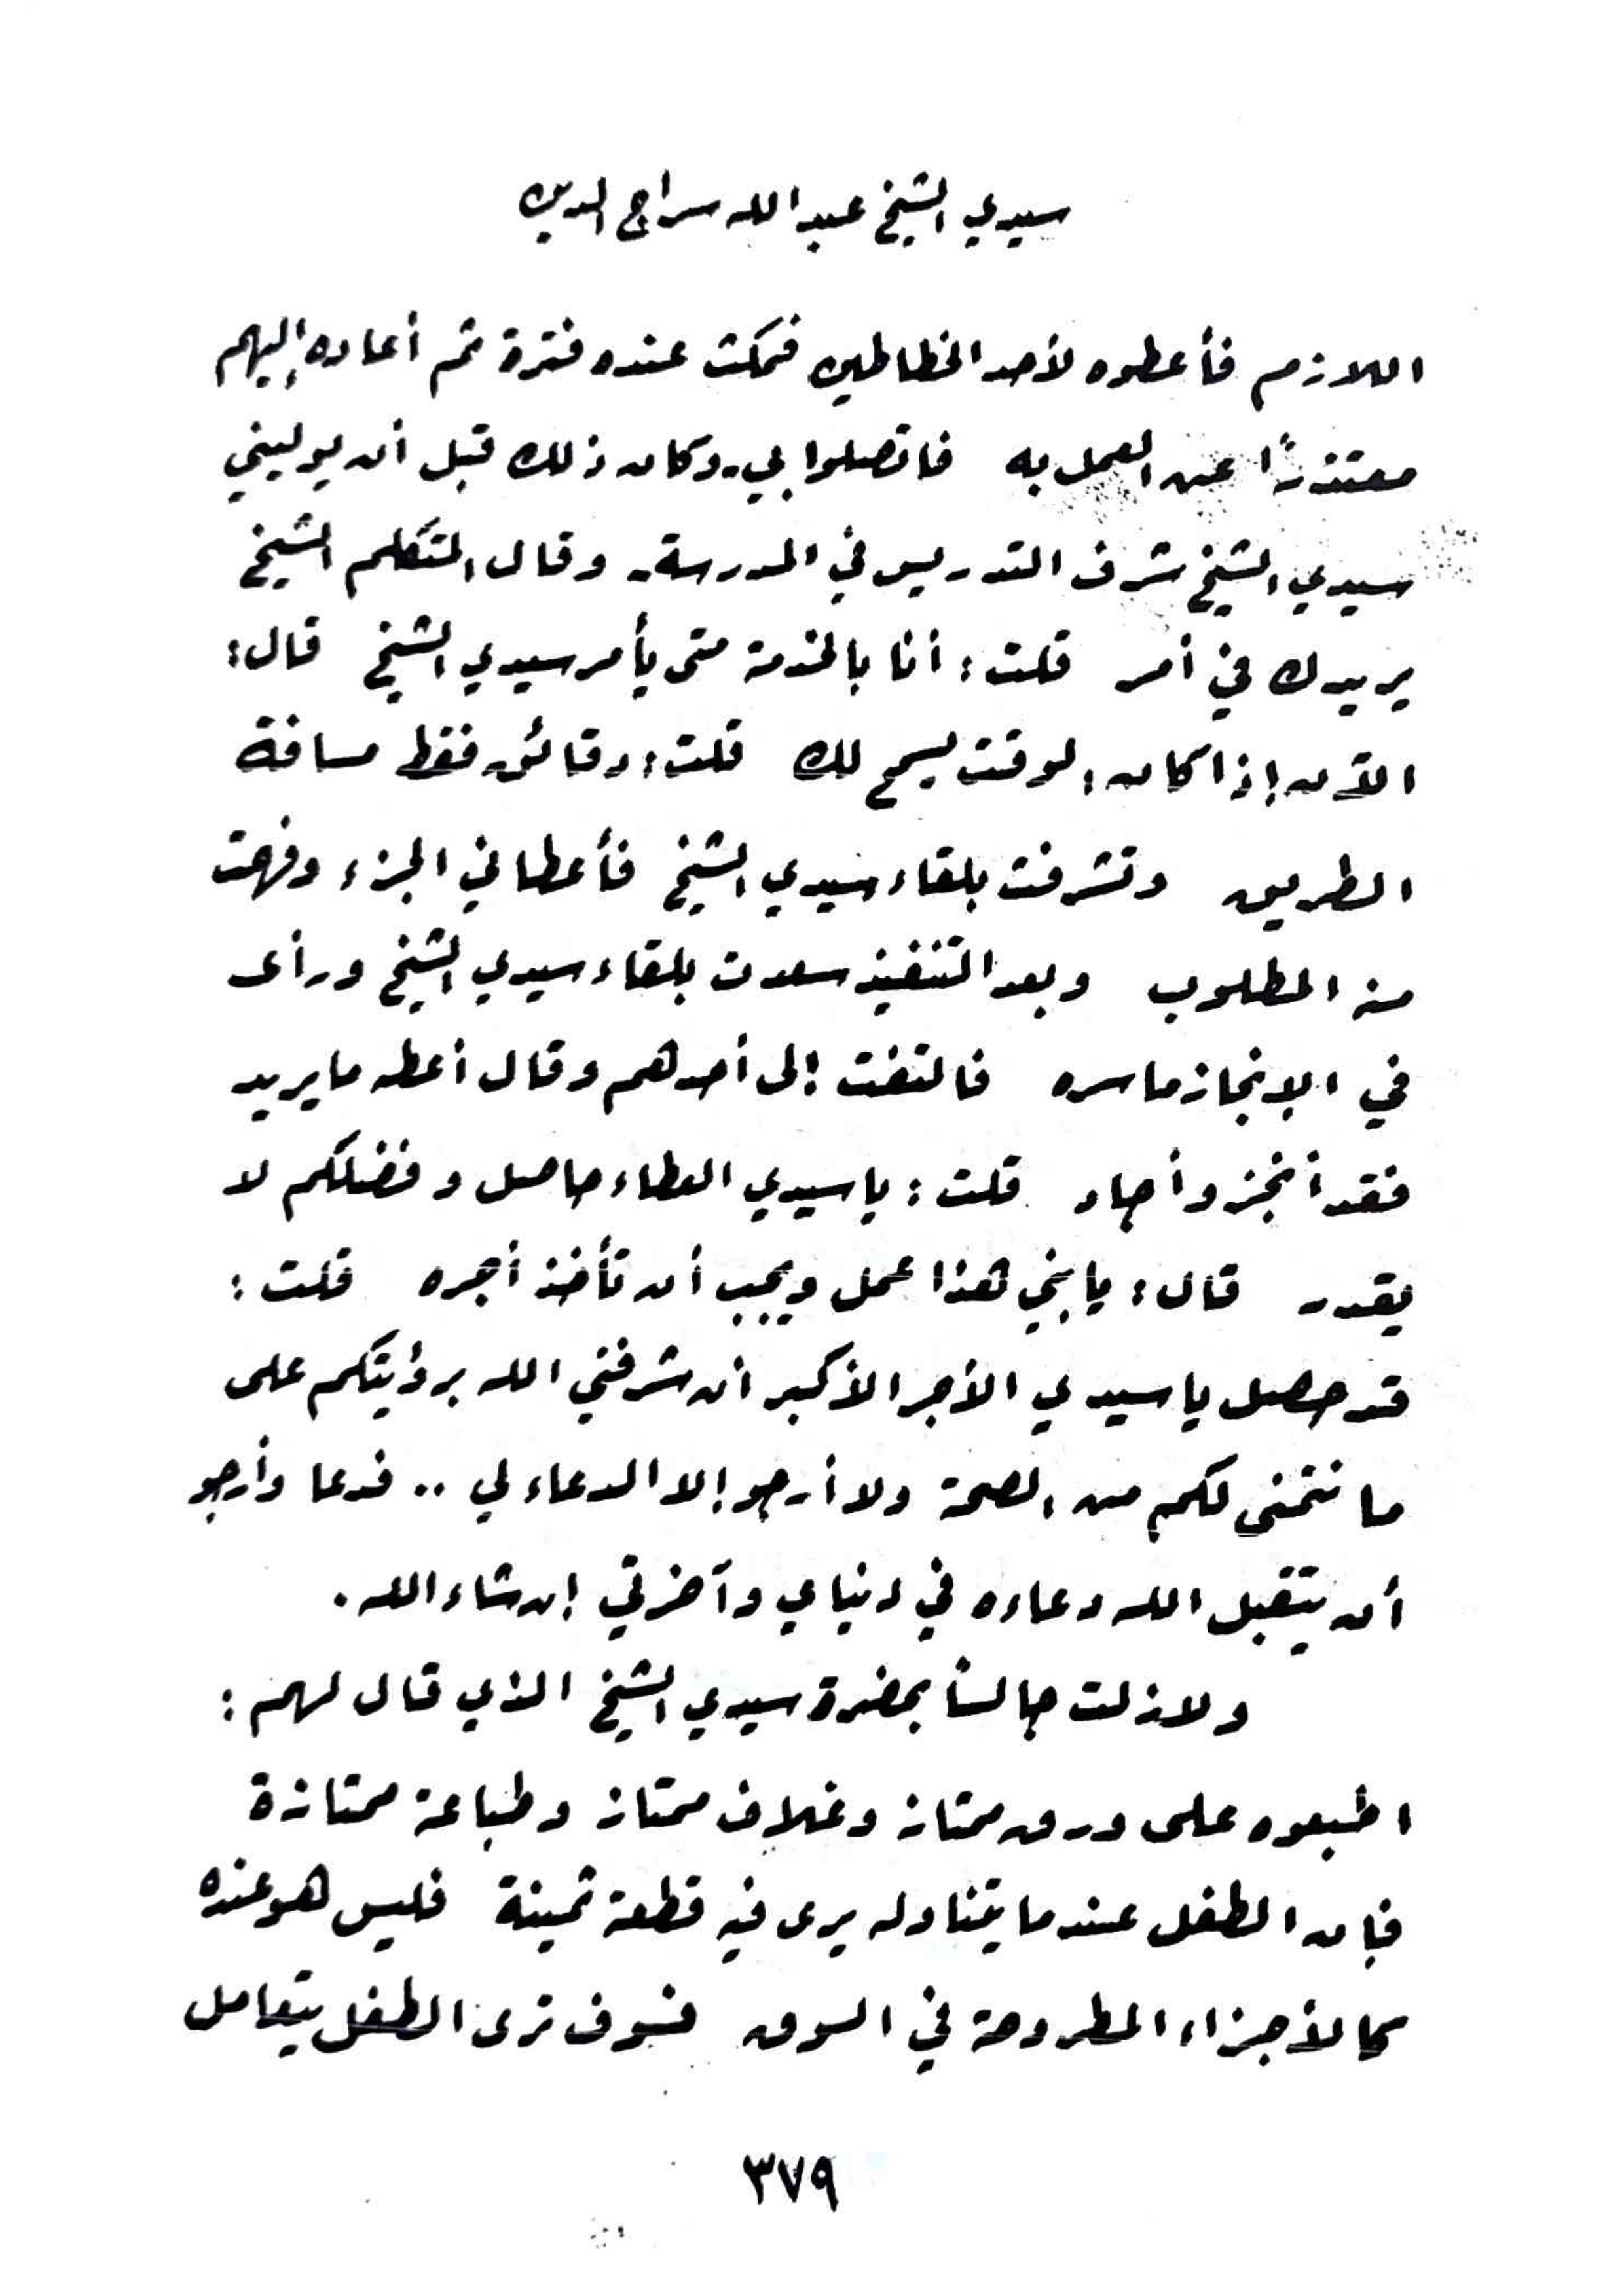 سيدي الشيخ عبد الله سراج الدين
اللازم فأعطوه لأحد الخطاطين فمكث عنده فترة ثم أعاده إليهم
معتذرًا عن العمل به فاتصلوا بي- وكان ذلك قبل أن يوليني
سيدي الشيخ شرف التدريس في المدرسة- وقال المتكلم الشيخ
يريدك في أمر قلت: أنا بالخدمة متى يأمر سيدي الشيخ قال:
الآن إذا كان الوقت يسمح لك قلت: دقائق فقط مسافة
الطريق وتشرفت بلقاء سيدي الشيخ فأعطاني الجزء وفهمت
منه المطلوب وبعد التنفيذ سعدت بلقاء سيدي الشيخ ورأى
في الإنجاز ما سره فالتفت إلى أحدهم وقال أعطه ما يريد
فقد أنجز وأجاد قلت: يا سيدي العطاء حاصل وفضلكم لا
يقدر قال: يا بني هذا عمل ويجب أن تأخذ أجره قلت:
قد حصل يا سيدي الأجر الأكبر أن شرفني الله برؤيتكم على
ما نتمنى لكم من الصحة ولا أرجو إلا الدعاء لي .. فدعا وأرجو
أن يتقبل الله دعاءه في دنياي وآخرتي إن شاء الله.
ولازلت جالسًا بحضرة سيدي الشيخ الذي قال لهم:
اطبعوه على ورق ممتاز وغلاف ممتاز وطباعة ممتازة
فإن الطفل عندما يتناوله يرى فيه قطعة ثمينة فليس هو عنده
كالأجزاء المطروحة في السوق فسوف ترى الطفل يتعامل
٣٧٩